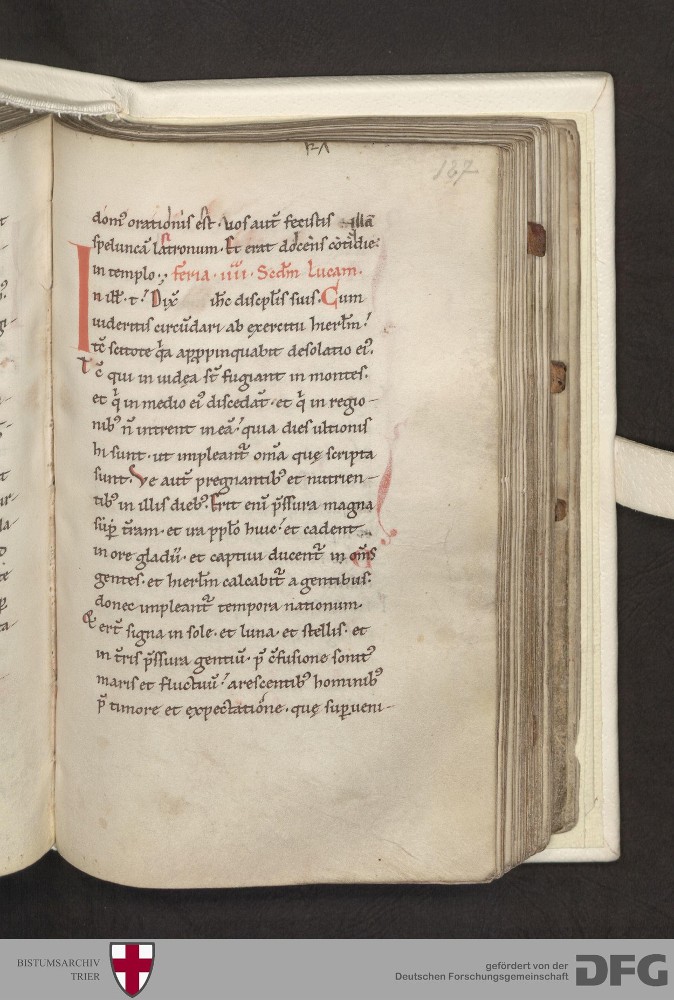 187
domꝰ orationis est · uos aut̄ fecistis illā
speluncā latronum · Et erat docens cotidie:
in templo · feria · iiii · Scdm̄ lucam ·
In ill̄ · t · Dix̄ ih̄c discipl̄is suis · Cum
uideritis circūdari ab exercitu hierl̄m
tc̄ scitote q̄a appropinquabit desolatio eiꝰ.
tc̄ qui in iudęa st̄ fugiant in montes ·
et q̄ in medio eiꝰ discedat̄ · et q̄ in regio-
nibꝰ n̄ intrent in eā · quia dies ultionis
hi sunt · ut impleant̄ om̄a quę scripta
sunt · Ve aut̄ pregnantibꝰ et nutrien-
tibꝰ in illis diebꝰ · Erit eni p̄ssura magna
sup̄ t̄ram · et ira pp̄lo huic · et cadent
in ore gladii · et captiui ducent̄ in om̄s
gentes · et hierl̄m calcabit̄ a gentibus ·
donec impleant̄ tempora nationum ·
Et ert̄ signa in sole · et luna · et stellis · et
in t̄ris p̄ssura gentiū · p̄ c̄fusione sonitꝰ
maris et fluctuū · arescentibꝰ hominibꝰ
p̄ timore et expectatione · quę supueni-
BISTUMSARCHIV
TRIER
gefördert von der
Deutschen Forschungsgemeinschaft
DFG